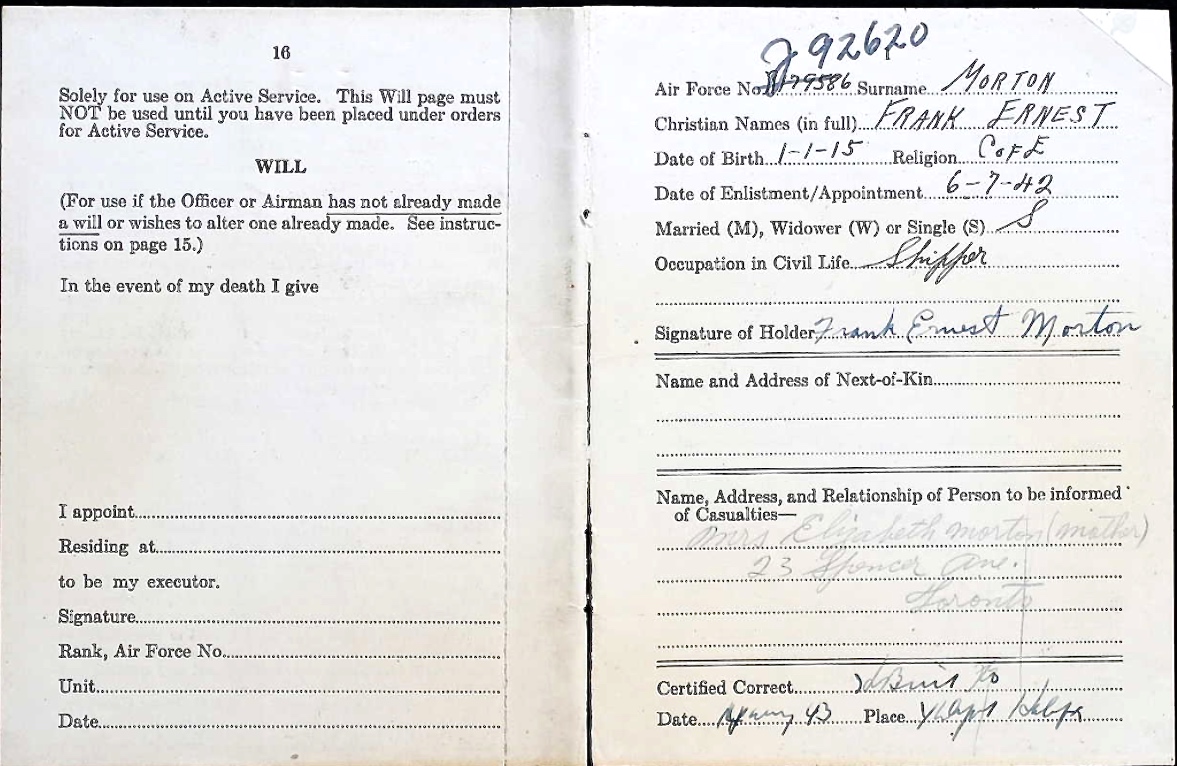 16
Solely for use on Active Service. This Will page must
NOT be used until you have been placed under orders
for Active Service.
WILL
(For use if the Officer or Airman has not already made
a will or wishes to alter one already made. See instruc-
tions on page 15.)
In the event of my death I give
I appoint
Residing at
to be my executor.
Signature
Rank, Air Force No.
Unit
Date
J 92620
Air Force No. 179586 Surname MORTON
Christian Names (in full) FRANK ERNEST
Date of Birth 1-1-15 Religion C of E
Date of Enlistment/Appointment 6-7-42
Married (M), Widower (W) or Single (S) S
Occupation in Civil Life Shipper
Signature of Holder Frank Ernest Morton
Name and Address of Next-of-Kin
Name, Address, and Relationship of Person to be informed
of Casualties—
Mrs Elizabeth Morton (mother)
23 Spencer Ave.
Toronto
Certified Correct
Date 43 Place